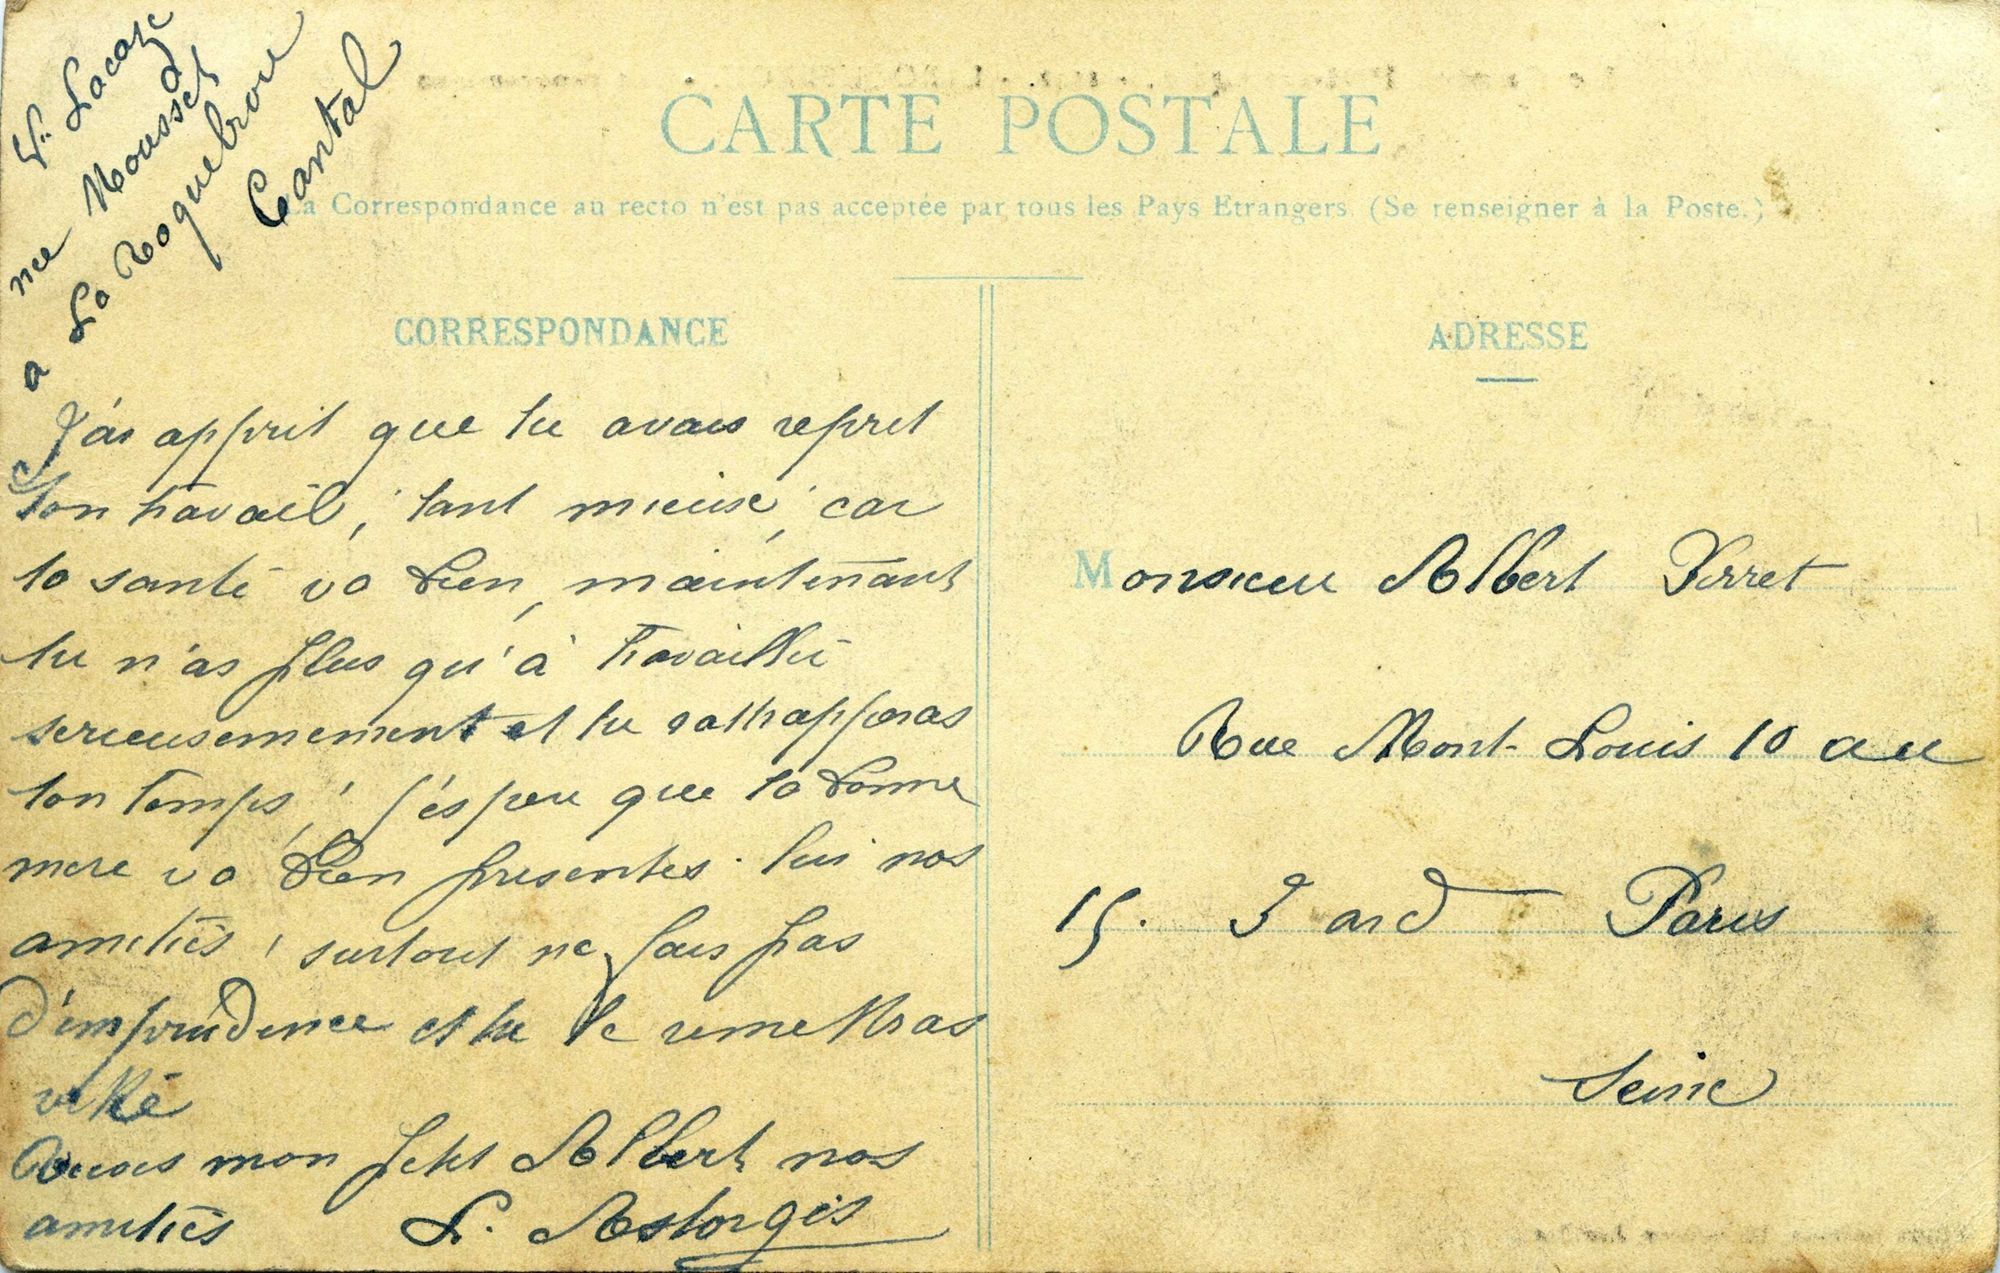 Vve Lacaze
née Mousset
à
a La Roquebrou
Cantal
CARTE POSTALE
La Correspondance au recto n'est pas acceptée par tous les Pays Etrangers (Se renseigner à la Poste.)
CORRESPONDANCE
J'ai apprit que tu avais reprit
ton travail, tant mieux, car
ta santé va bien, maintenant
tu n'as plus qu'à travaillé
serieusemement et tu rattrapperas
ton temps, j'éspere que ta bonne
mere va bien presentes lui nos
amitiés, surtout ne fais pas
d'imprudence et tu te remettras
vitte
Reçois mon petit Albert nos
amitiés L. Astorgis
ADRESSE
Monsieur Albert Perret
Rue Mont-Louis 10 au
15. Paris
Seine